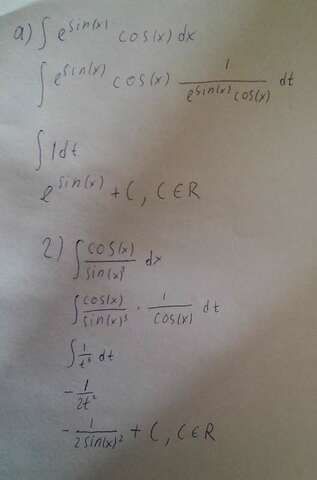 a) ∫ e^sin(x) cos(x) dx
∫ e^sin(x) cos(x) 1/(e^sin(x) cos(x)) dt
∫ 1 dt
e^sin(x) + C, C ∈ R
2) ∫ cos(x)/sin(x)^3 dx
∫ cos(x)/sin(x)^3 · 1/cos(x) dt
∫ 1/t^3 dt
- 1/2t^2
- 1/2sin(x)^2 + C, C ∈ R